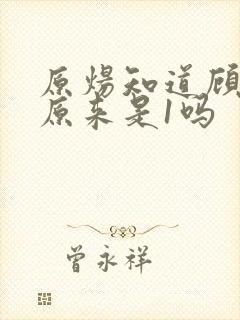 原煬知道顾
原来是1吗
曾永祥